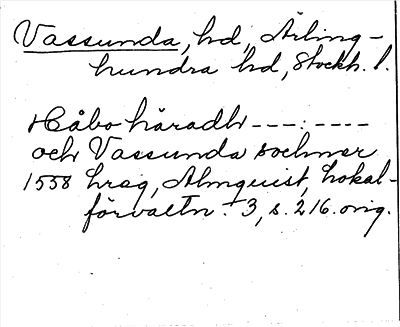 Vassunda, hd, Ärling-
hundra hd, Stockh. l.
Håbo häradh ---:----
och Vassunda sochner
1558 hrag, Almquist, Lokal-
förvaltn. 3, s. 216. orig.